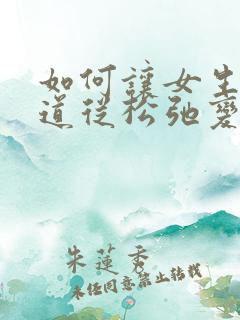 如何讓女生
道從松弛變
朱蓮秀
未任同意禁止轉載